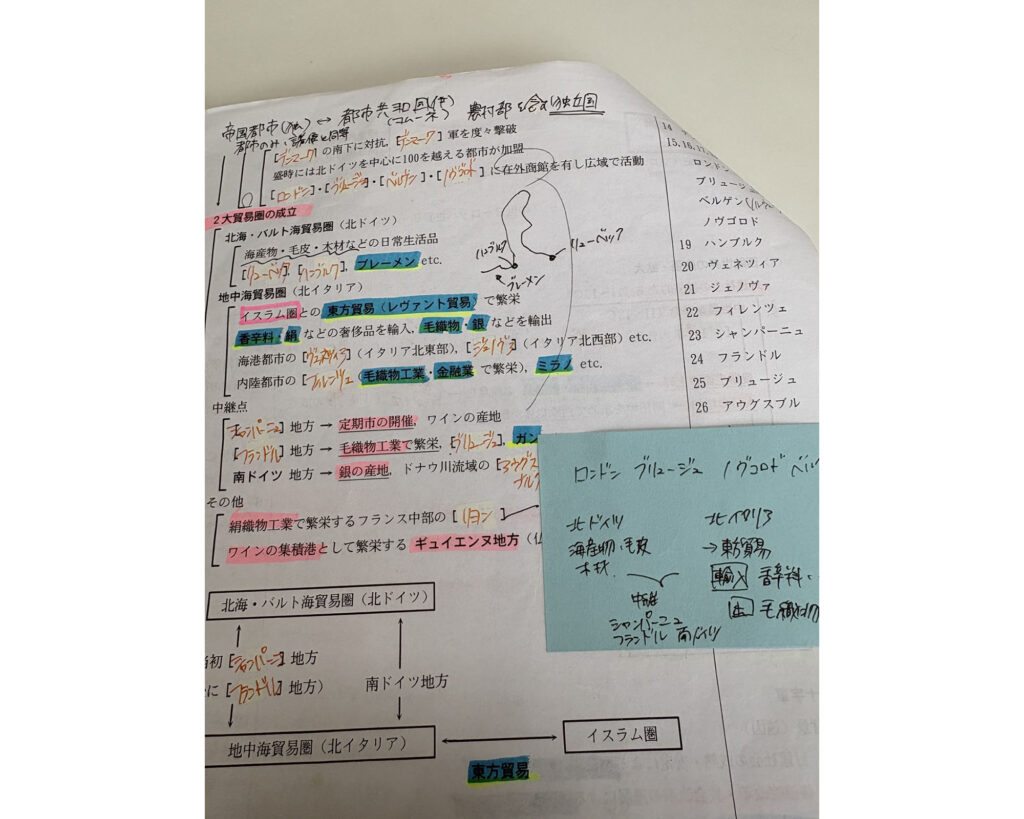 帝国都市(独) ↔ 都市共和国(伊) 農村部を含む独立国
都市のみ 諸侯と同等 (コムーネ)
[デンマーク]の南下に対抗, [デンマーク]軍を度々撃破
盛時には北ドイツを中心に100を越える都市が加盟
[ロンドン]・[ブリュージュ]・[ベルゲン]・[ノヴゴロド]に在外商館を有し広域で活動
2大貿易圏の成立
北海・バルト海貿易圏(北ドイツ)
海産物・毛皮・木材などの日常生活品
[リューベック], [ハンブルク], ブレーメン etc.
ハンブルク
リューベック
ブレーメン
地中海貿易圏(北イタリア)
イスラム圏との東方貿易(レヴァント貿易)で繁栄
香辛料・絹などの奢侈品を輸入, 毛織物・銀などを輸出
海港都市の[ヴェネツィア](イタリア北東部), [ジェノヴァ](イタリア北西部) etc.
内陸都市の[フィレンツェ](毛織物工業・金融業で繁栄), ミラノ etc.
中継点
[シャンパーニュ]地方 → 定期市の開催, ワインの産地
[フランドル]地方 → 毛織物工業で繁栄, [ブリュージュ], ガン
南ドイツ地方 → 銀の産地, ドナウ川流域の[アウグス
その他
絹織物工業で繁栄するフランス中部の[リヨン]
ワインの集積港として繁栄するギュイエンヌ地方(仏
北海・バルト海貿易圏(北ドイツ)
当初[シャンパーニュ]地方
に[フランドル]地方)
南ドイツ地方
地中海貿易圏(北イタリア)
イスラム圏
東方貿易
14
15,16,17
ロンドン
ブリュージュ
ベルゲン(ノルウェー
ノヴゴロド
19 ハンブルク
20 ヴェネツィア
21 ジェノヴァ
22 フィレンツェ
23 シャンパーニュ
24 フランドル
25 ブリュージュ
26 アウグスブル
ロンドン ブリュージュ ノヴゴロド ベル
北ドイツ
海産物・毛皮
木材
北イタリア
→東方貿易
輸入 香辛料・
出 毛織物
中継
シャンパーニュ
フランドル 南ドイツ